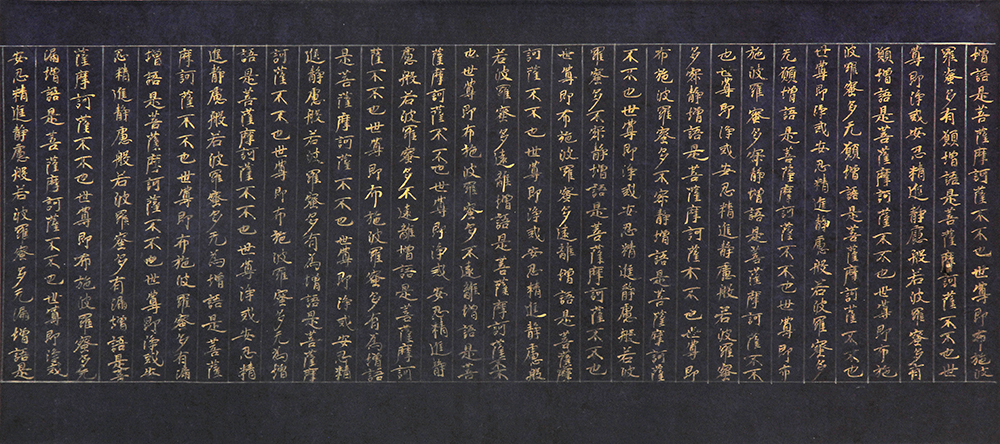 增語是菩薩摩訶薩不不也世尊即布施波
羅蜜多有願增語是菩薩摩訶薩不不也世
尊即淨戒安忍精進靜慮般若波羅蜜多有
願增語是菩薩摩訶薩不不也世尊即布施
波羅蜜多无願增語是菩薩摩訶薩不不也
世尊即淨戒安忍精進靜慮般若波羅蜜多
无願增語是菩薩摩訶薩不不也世尊即布
施波羅蜜多寂靜增語是菩薩摩訶薩不不
也世尊即淨戒安忍精進靜慮般若波羅蜜
多寂靜增語是菩薩摩訶薩不不也世尊即
布施波羅蜜多不寂靜增語是菩薩摩訶薩
不不也世尊即淨戒安忍精進靜慮般若波
羅蜜多不寂靜增語是菩薩摩訶薩不不也
世尊即布施波羅蜜多遠離增語是菩薩摩
訶薩不不也世尊即淨戒安忍精進靜慮般
若波羅蜜多遠離增語是菩薩摩訶薩不不
也世尊即布施波羅蜜多不遠離增語是菩
薩摩訶薩不不也世尊即淨戒安忍精進靜
慮般若波羅蜜多不遠離增語是菩薩摩訶
薩不不也世尊即布施波羅蜜多有為增語
是菩薩摩訶薩不不也世尊即淨戒安忍精
進靜慮般若波羅蜜多有為增語是菩薩摩
訶薩不不也世尊即布施波羅蜜多无為增
語是菩薩摩訶薩不不也世尊淨戒安忍精
進靜慮般若波羅蜜多无為增語是菩薩
摩訶薩不不也世尊即布施波羅蜜多有漏
增語是菩薩摩訶薩不不也世尊即淨戒安
忍精進靜慮般若波羅蜜多有漏增語是菩
薩摩訶薩不不也世尊即布施波羅蜜多无
漏增語是菩薩摩訶薩不不也世尊即淨戒
安忍精進靜慮般若波羅蜜多无漏增語是